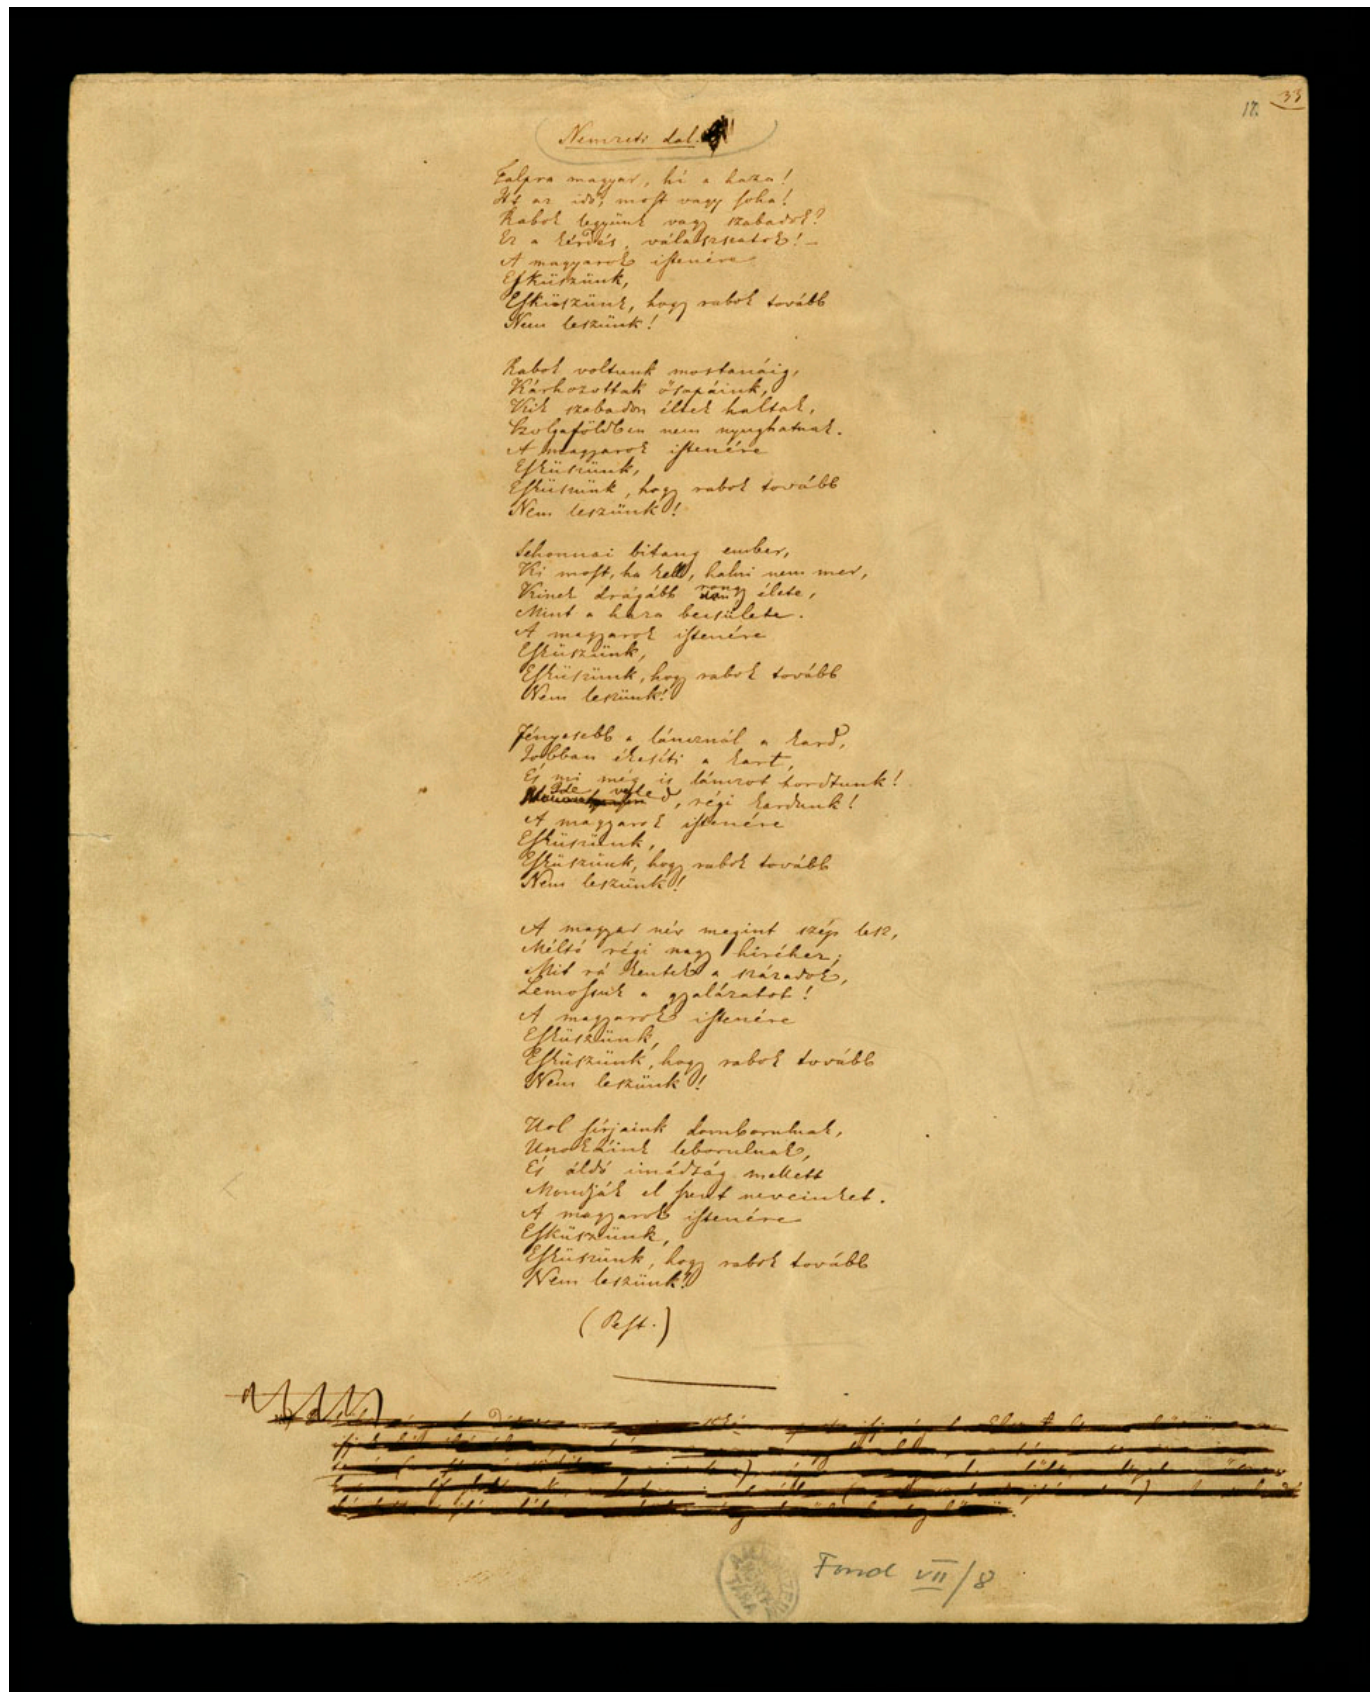 33
17.
Nemzeti dal.
Talpra magyar, hí a haza!
Itt az idő, most vagy soha!
Rabok legyünk vagy szabadok?
Ez a kérdés, válaszszatok! –
A magyarok istenére
Esküszünk,
Esküszünk, hogy rabok tovább
Nem leszünk!
Rabok voltunk mostanáig,
Kárhozottak ősapáink,
Kik szabadon éltek haltak,
Szolgaföldben nem nyughatnak.
A magyarok istenére
Esküszünk,
Esküszünk, hogy rabok tovább
Nem leszünk!
Sehonnai bitang ember,
Ki most, ha kell, halni nem mer,
Kinek drágább rongy élete,
Mint a haza becsülete.
A magyarok istenére
Esküszünk,
Esküszünk, hogy rabok tovább
Nem leszünk!
Fényesebb a láncznál a kard,
Jobban ékesíti a kart,
És mi még is lánczot hordtunk!
Ide veled, régi kardunk!
A magyarok istenére
Esküszünk,
Esküszünk, hogy rabok tovább
Nem leszünk!
A magyar név megint szép lesz,
Méltó régi nagy híréhez;
Mit rá kentek a századok,
Lemossuk a gyalázatot!
A magyarok istenére
Esküszünk,
Esküszünk, hogy rabok tovább
Nem leszünk!
Hol sírjaink domborulnak,
Unokáink leborulnak,
És áldó imádság mellett
Mondják el szent neveinket.
A magyarok istenére
Esküszünk,
Esküszünk, hogy rabok tovább
Nem leszünk!
(Pest.)
Fond VII/8